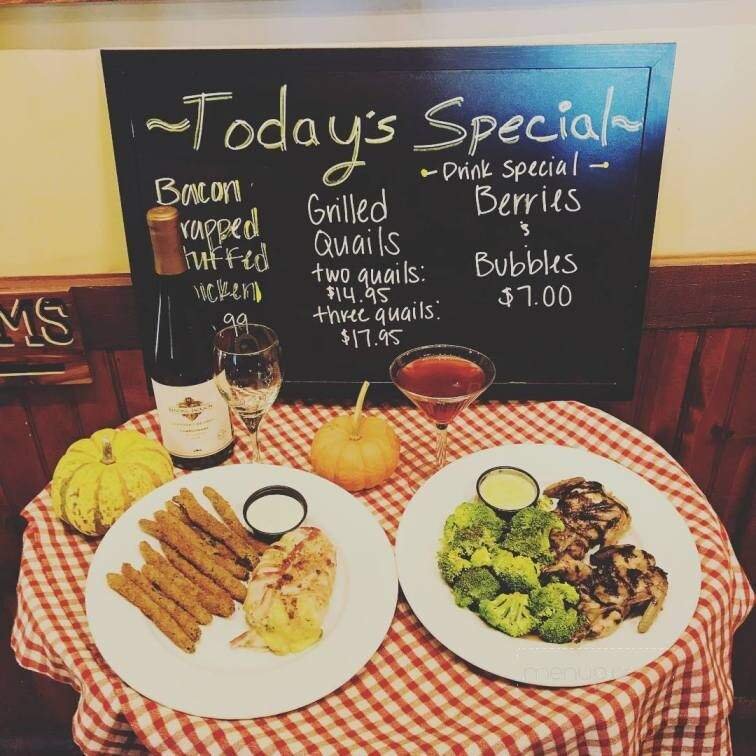 ~Today's Special~
Bacon
rapped
tuffed
icken
99
Grilled
Quails
two quails:
$14.95
three quails:
$17.95
- Drink special -
Berries
&
Bubbles
$7.00
MS
menu